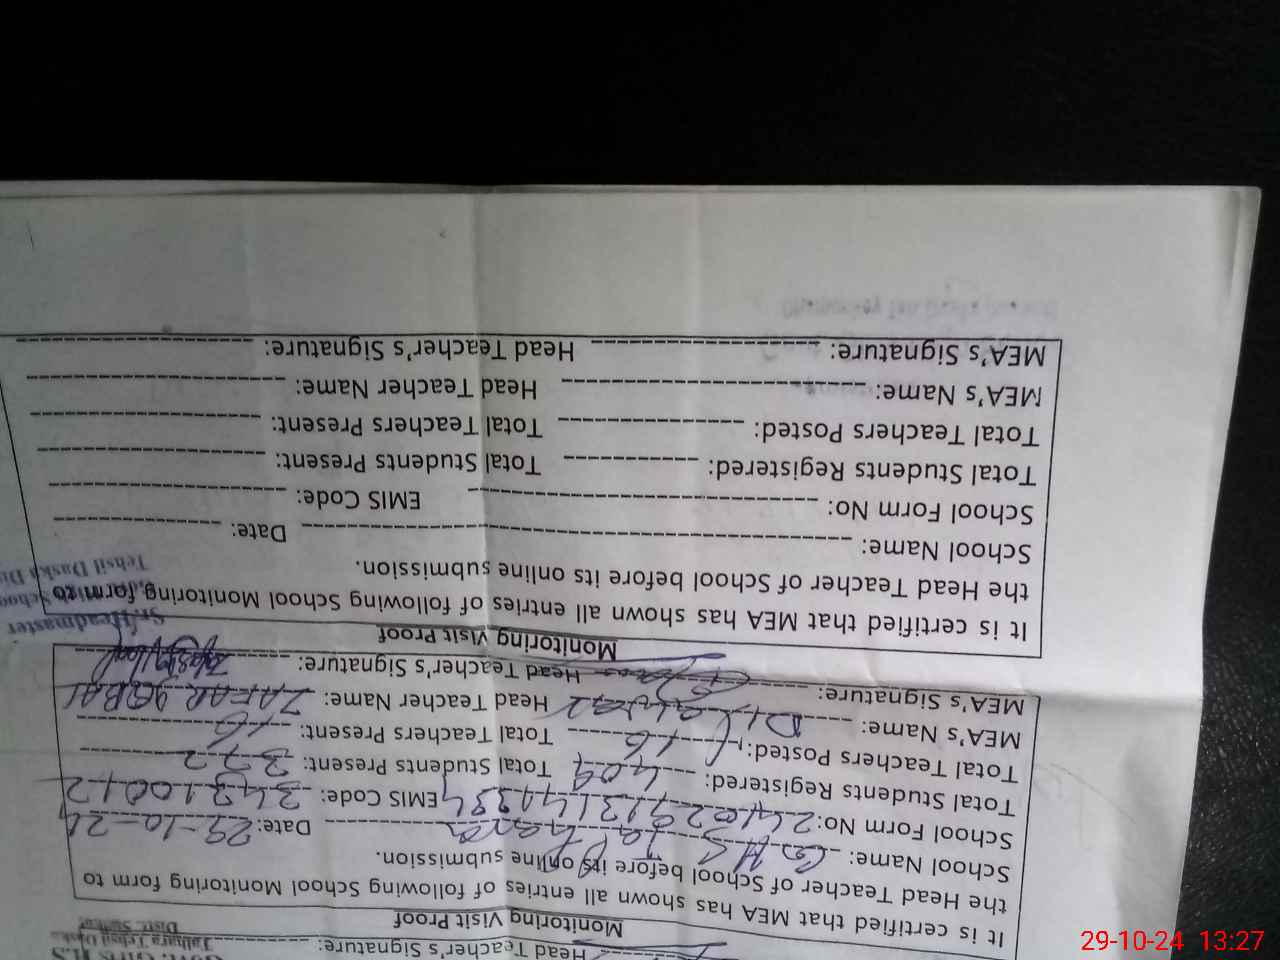 Head Teacher's Signature:
Govt. Girls H.S
Talhara Tehsil Daska
Distt. Sialkot
Monitoring Visit Proof
It is certified that MEA has shown all entries of following School Monitoring form to
the Head Teacher of School before its online submission.
School Name: GHS Date: 29-10-24
School Form No: EMIS Code: 34310012
Total Students Registered: 409 Total Students Present: 372
Total Teachers Posted: 16 Total Teachers Present: 16
MEA's Name: Head Teacher Name: ZAFAR IQBAL
MEA's Signature: Head Teacher's Signature:
Sr. Headmaster
Tehsil Daska
Monitoring Visit Proof
It is certified that MEA has shown all entries of following School Monitoring form to
the Head Teacher of School before its online submission.
School Name: Date:
School Form No: EMIS Code:
Total Students Registered: Total Students Present:
Total Teachers Posted: Total Teachers Present:
MEA's Name: Head Teacher Name:
MEA's Signature: Head Teacher's Signature:
29-10-24 13:27